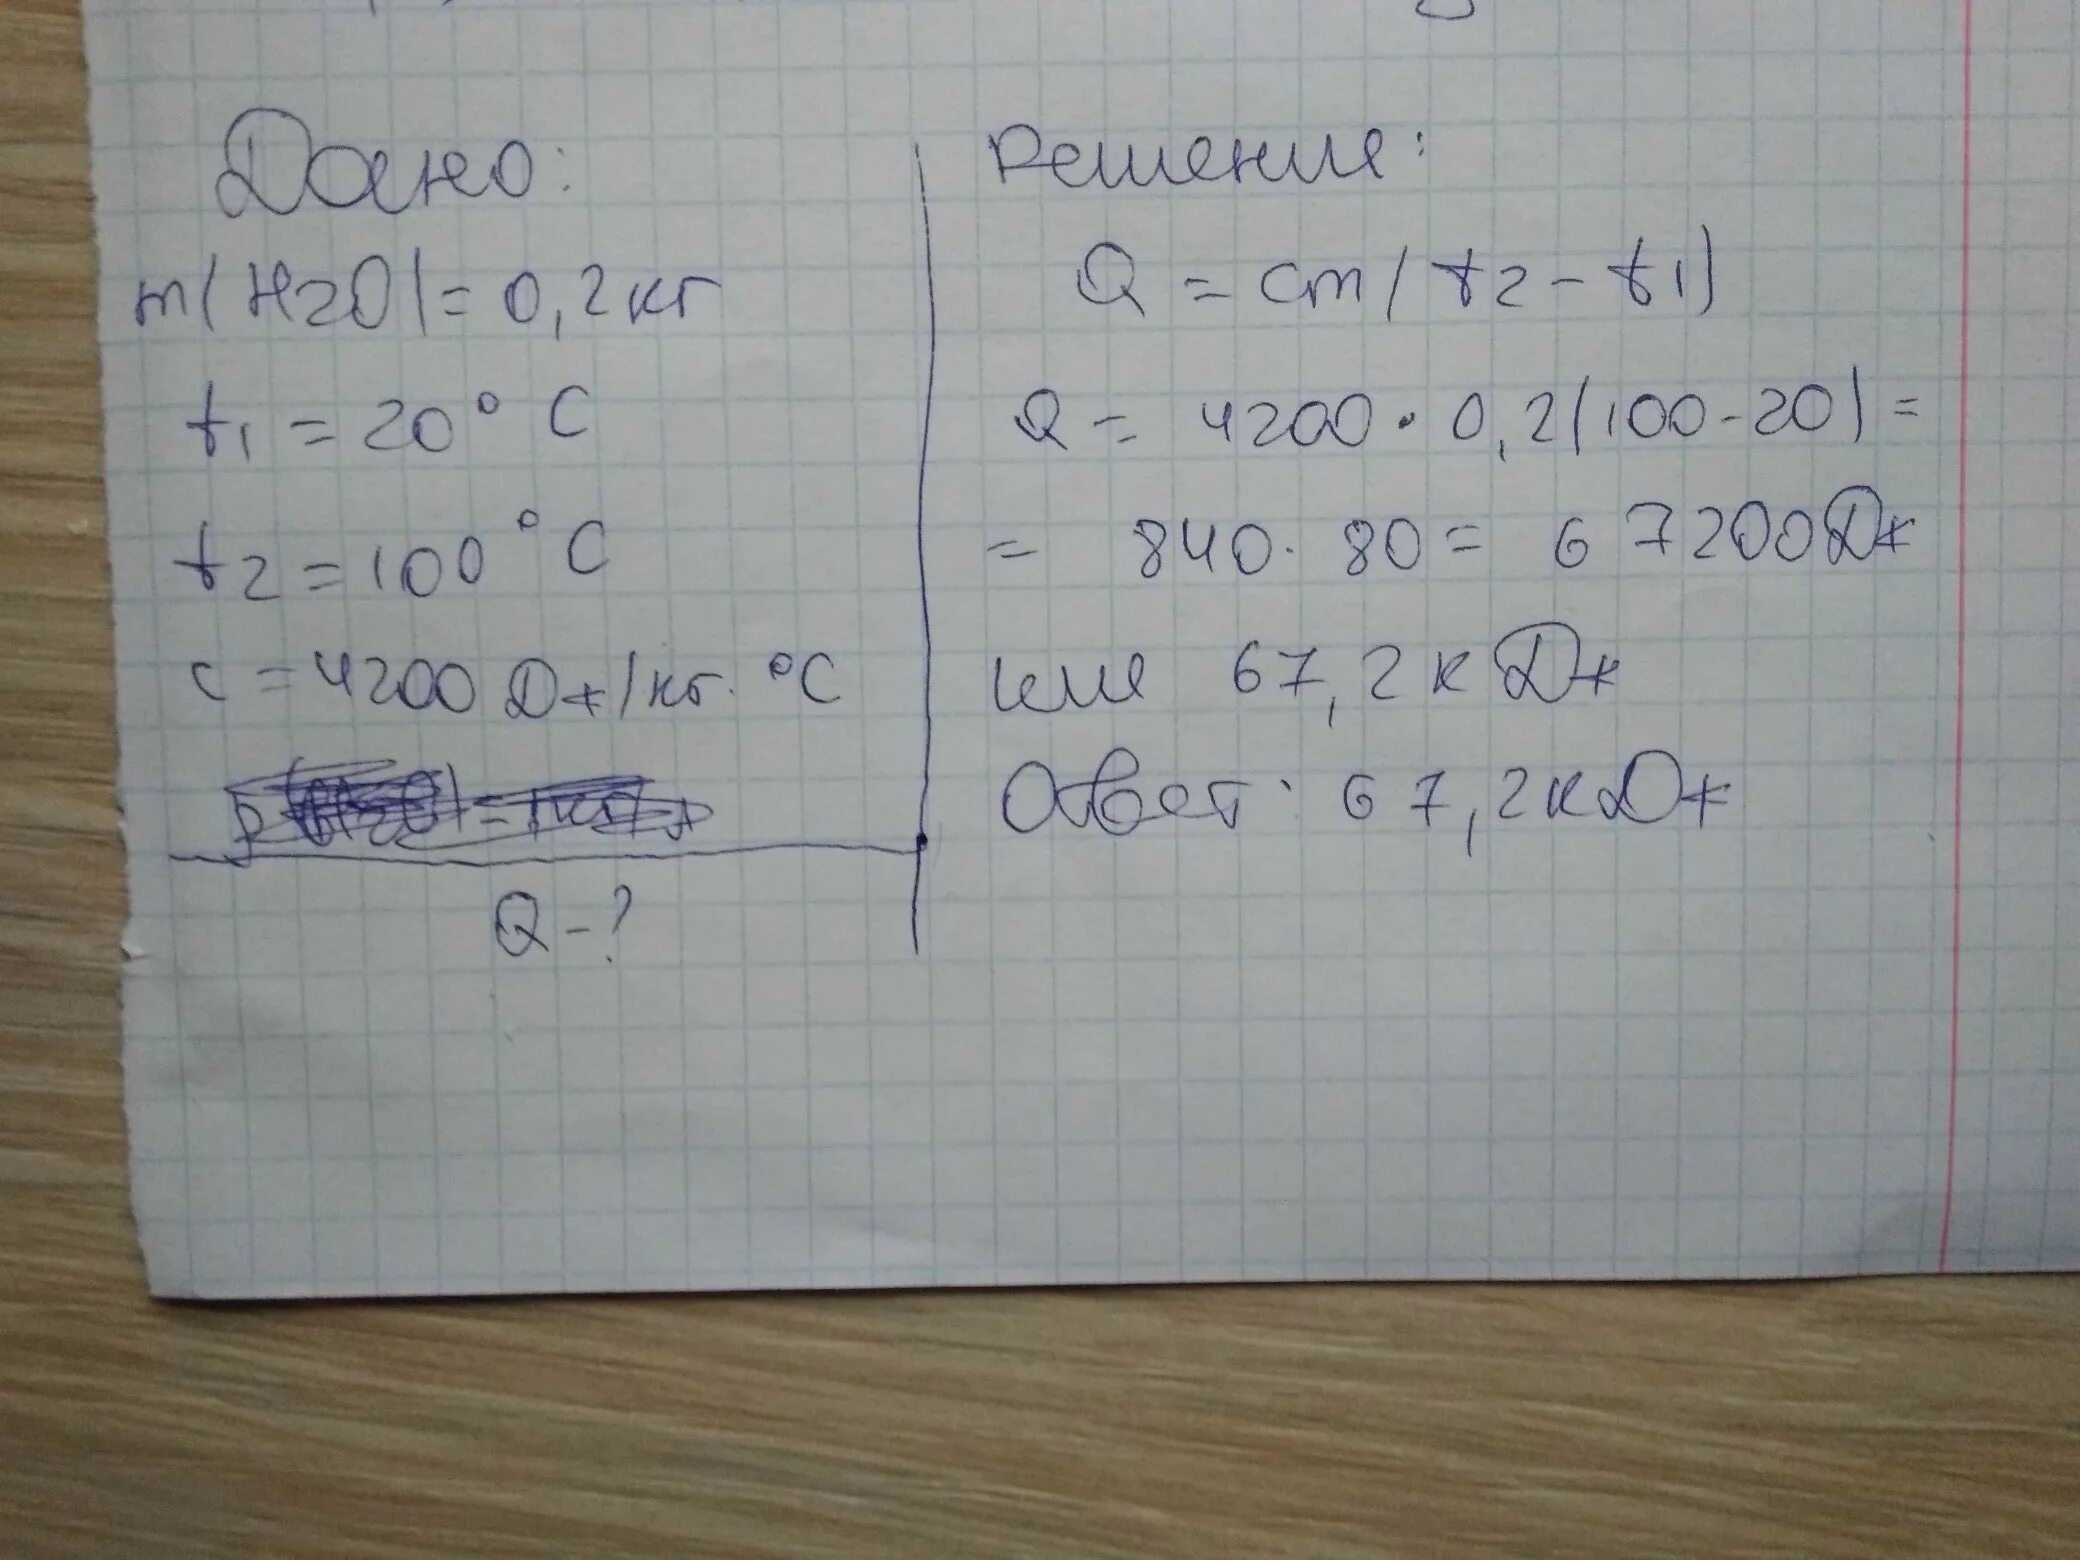 Дано:
m(H2O)=0,2кг
t1=20°C
t2=100°C
c=4200Дж/кг·°C
Q-?
Решение:
Q=cm(t2-t1)
Q=4200·0,2(100-20)=
=840·80=67200Дж
или 67,2кДж
Ответ: 67,2кДж